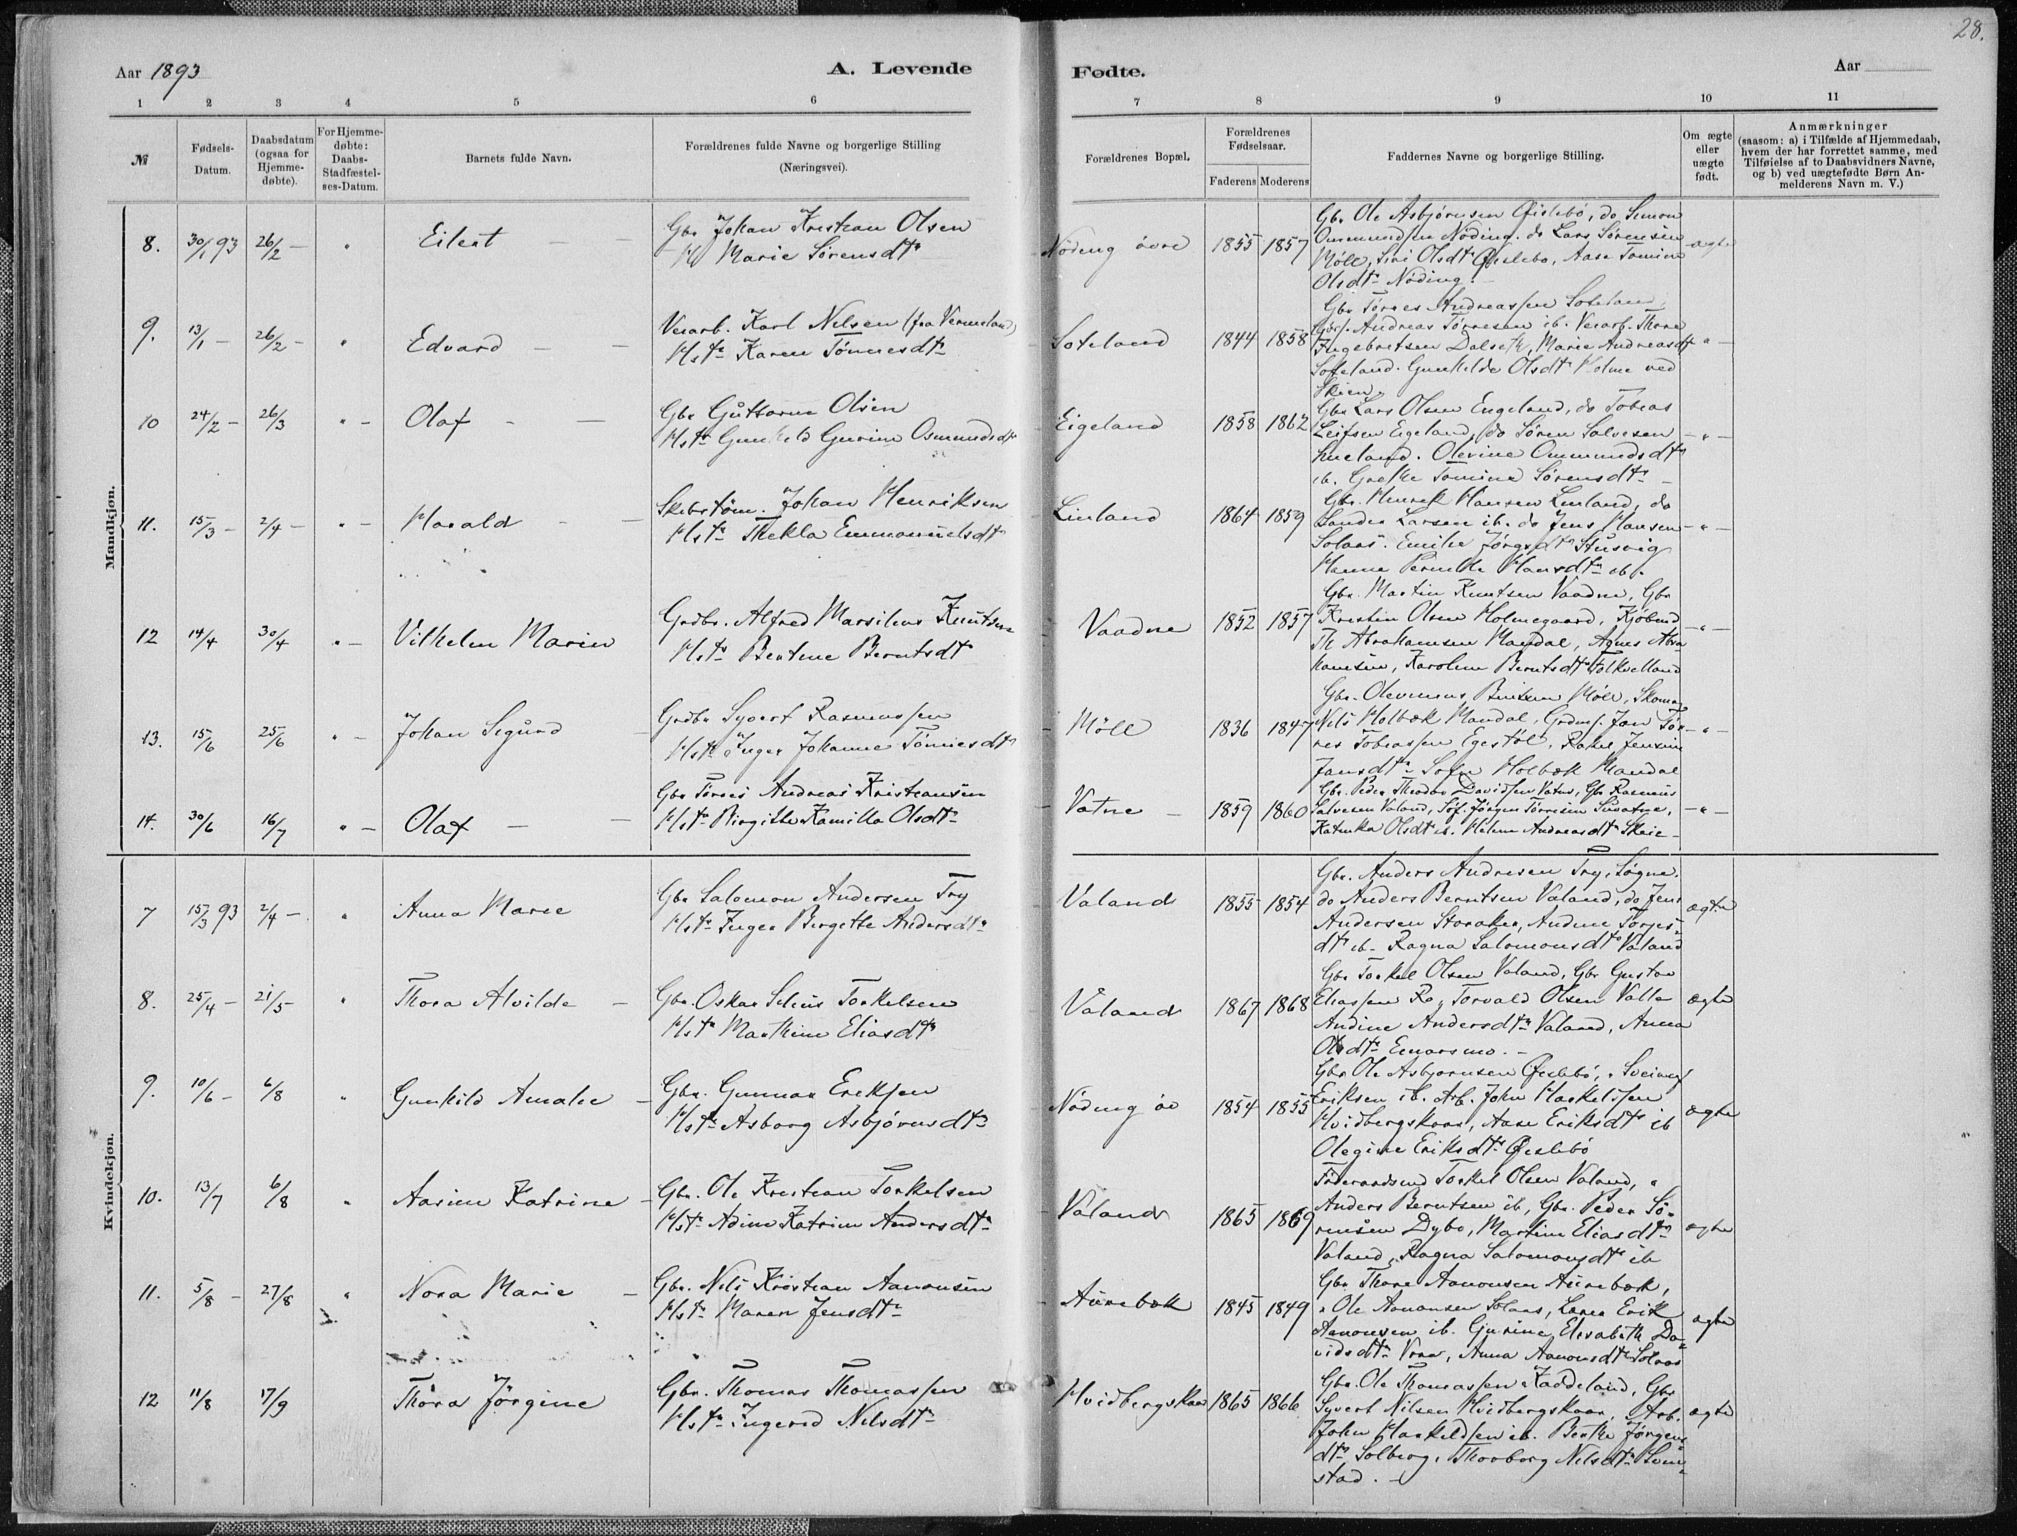 28.
Aar 1893
A. Levende
Fødte.
Aar
1 2 3 4 5 6 7 8 9 10 11
№
Fødsels-
Datum.
Daabsdatum
(ogsaa for
Hjemme-
døbte).
For Hjemme-
døbte:
Daabs-
Stadfæstel-
ses-Datum.
Barnets fulde Navn.
Forældrenes fulde Navne og borgerlige Stilling
(Næringsvei).
Forældrenes Bopæl.
Forældrenes
Fødselsaar.
Faderens Moderens
Faddernes Navne og borgerlige Stilling.
Om ægte
eller
uægte
født.
Anmærkninger
(saasom: a) i Tilfælde af Hjemmedaab,
hvem der har forrettet samme, med
Tilføielse af to Daabsvidners Navne,
og b) ved uægtefødte Børn An-
melderens Navn m. V.)
Mandkjøn.
8. 30/1 93 26/2 — " Eilert — —
Gbr Johan Kristian Olsen
Marie Sørensdtr
Nöding övre 1855 1857
Gbr Ole Asbjørnsen Øislebö, do Simon
Ommundsen Nöding. do Lars Sørensen
Möll, Siri Olsdtr Øislebö, Aase Tomine
Olsdtr Nöding.
ægte
9. 13/1 — 26/2 — " Edvard — —
Verarb. Karl Nilsen (fra Vermeland)
Hstr Karen Tönnesdtr
Soteland 1844 1858
Gbr Tørres Andreassen Soteland,
Andreas Tørresen ib. Verarb. Thore
Ingebretsen Dalseth, Marie Andreasdtr
Soteland. Gunhilde Olsdtr Holme ved
Skien.
— " —
10 24/2 — 26/3 " — Olaf — —
Gbr Guttorm Olsen
Hstr Gunhild Gurine Osmundsdtr
Eigeland 1858 1862
Gbr Lars Olsen Engeland, do Tobias
Leifsen Eigeland, do Søren Salvesen
. Olevine Ommundsdtr
ib. Grethe Tomine Sørensdtr —
— " —
11. 15/3 — 2/4 — " — Harald — —
Skibstöm. Johan Henriksen
Hstr Thekla Emmanuelsdtr
Linland 1864 1859
Gbr. Henrik Hansen Linland, do
Sander Larsen ib. do Jens Hansen
Solaas. Emilie Jørgsdtr Stusvig
Hanne Pernille Hansdtr ib.
— " —
12 14/4 30/4 " — Vilhelm Marin
Grdbr. Alfred Marsilius Knutsen
Hstr Bertine Berntsdtr
Vaadne 1852 1857
Gbr. Martin Knutsen Vaadne, Gbr
Kristin Olsen Holmegaard, Kjøbmd
Th Abrahamsen Mandal, Agnes Abra
hamsen, Karoline Berntsdtr Holkvelland
— " —
13. 15/6 25/6 " — Johan Sigurd —
Grdbr Syvert Rasmussen
Hstr Inger Johanne Tönnesdtr
Möll 1836 1847
Gbr. Olevinus Bentsen Möll, Skomag
Nils Holbæk Mandal, Grdmf. Jan Tør
res Tobiassen Egestöl, Rakel Jensine
Jansdtr. Sofie Holbæk Mandal
— " —
14. 30/6 16/7 " — Olaf — —
Gbr Tørres Andreas Kristiansen
Hstr Birgitte Kamilla Olsdtr
Vatne — 1859 1860
Gbr. Peder Theodor Davidsen Vatne, Gbr Rasmus
Salvesen Valand, Søf. Jørgen Tørresen ,
Katinka Olsdtr ib. Helene Andreasdtr Skeie —
— " —
Kvindekjøn.
7 15/3 93 2/4 — " Anna Marie
Gbr Salomon Andersen Try
Hstr Inger Birgitte Andersdtr
Valand 1855 1854
Gbr. Anders Andresen Try, Søgne.
do Anders Berntsen Valand, do Jens
Andersen Storaker, Andine Torjes-
dtr ib. Ragna Salomonsdtr Valand
ægte
8. 25/4 — 21/5 " Thora Alvilde —
Gbr. Oskar Selius Torkelsen
Hstr Marthine Eliasdtr
Valand 1867 1868
Gbr Torkel Olsen Valand, Gbr Gustav
Eliassen Ro, Torvald Olsen Valle
Andine Andersdtr Valand, Anna
Olsdtr Einarsmo. —
ægte
9. 10/6 — 6/8 " Gunhild Amalie —
Gbr. Gunnar Eriksen
Hstr Asborg Asbjörnsdtr
Nöding öv 1854 1855
Gbr Ole Asbjørnsen Øislebö, " Sveinung
Eriksen ib. Arb. John Haskelssen
Hvidbergskaar, Aase Eriksdtr ib
Olegine Eriksdtr Øislebö
ægte
10. 13/7 6/8 " Aasine Katrine —
Gbr. Ole Kristian Torkelsen
Hstr Adine Katrine Andersdtr
Valand 1865 1869
Föderaadsmd Torkel Olsen Valand, "
Anders Berntsen ib, Gbr. Peder Sö-
rensen Dybo, Martine Eliasdtr
Valand, Ragna Salomonsdtr ib
ægte
11. 5/8 — 27/8 " Nora Marie —
Gbr. Nils Kristian Aanonsen
Hstr Maren Jensdtr
Aurebæk 1845 1849
Gbr Thore Aanonsen Aurebæk,
" Ole Aanonsen Solaas, Lærer Erik
Aanonsen ib. Gurine Elisabeth Da-
vidsdtr Vraa, Anna Aanonsdtr Solaas
ægte
12 11/8 17/9 Thora Jörgine
Gbr. Thomas Thomassen
Hstr Ingerid Nilsdtr
Hvidbergskaar 1865 1866
Gbr. Ole Thomassen Kaddeland, Gbr
Syvert Nilsen Hvidbergskaar, Arb.
John Haskeldsen ib. Berthe Jørgens
dtr Solberg, Thorborg Nilsdtr
stad. —
ægte